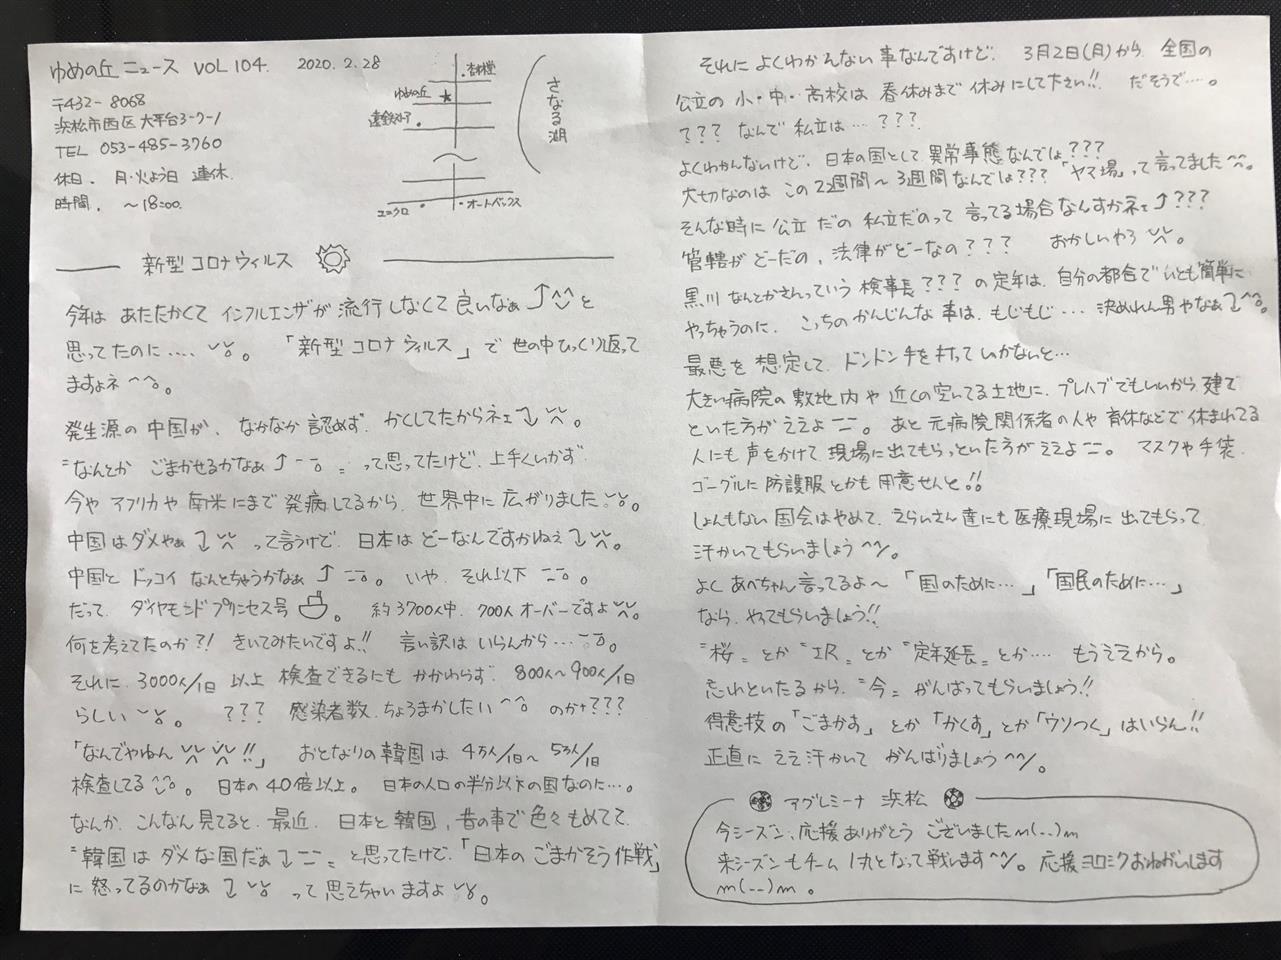 ゆめの丘ニュース VOL 104. 2020.2.28
〒432-8068
浜松市西区大平台3-7-1
TEL 053-485-3760
休日. 月・火よう日 連休.
時間. ～18:00.
杏林堂
ゆめの丘 ★
遠鉄ストア
さなる湖
ユニクロ
オートバックス
新型コロナウィルス
今年は あたたかくて インフルエンザが 流行しなくて 良いなぁ⤴^^と
思ってたのに…. 。 「新型コロナウィルス」で 世の中ひっくり返って
ますよネ^^。
発生源の中国が、なかなか認めず. かくしてたからネェ⤵。
〝なんとか ごまかせるかなぁ⤴ーー。〟って思ってたけど. 上手くいかず.
今や アフリカや 南米にまで 発病してるから. 世界中に 広がりました。
中国は ダメやぁ⤵ って言うけど. 日本は どーなんですかねぇ⤵。
中国と ドッコイ なんとちゃうかなぁ⤴ーー。 いや. それ以下 ーー。
だって. ダイヤモンドプリンセス号 。 約3700人中. 700人オーバーですよ。
何を考えてたのか?! きいてみたいですよ!! 言い訳は いらんから…ーー。
それに. 3000人/1日 以上 検査できるにも かかわらず. 800人～900人/1日
らしい 。 ??? 感染者数. ちょろまかしたい^^ のか+???
「なんでやねん !!」 おとなりの韓国は 4万人/1日～5万人/1日
検査してる^^。 日本の40倍以上。 日本の人口の半分以下の国なのに…。
なんか. こんなん見てると. 最近. 日本と韓国, 昔の事で色々もめてて.
〝韓国は ダメな国だぁ⤵ーー〟と思ってたけど.「日本の ごまかそう作戦」
に 怒ってるのかなぁ⤵ って 思えちゃいますよ。
それに よくわかんない事なんですけど. 3月2日(月)から. 全国の
公立の 小・中・高校は 春休みまで 休みにして下さい!! だそうで….。
??? なんで 私立は…???.
よくわかんないけど. 日本の国として 異常事態なんでしょ???
大切なのは この2週間～3週間なんでしょ???「ヤマ場」って言ってました^^。
そんな時に 公立だの 私立だのって 言ってる場合なんすかネェ⤴???
管轄が どーだの, 法律がどーなの??? おかしいわう 。
黒川なんとかさんっていう 検事長???の定年は. 自分の都合で いとも簡単に
やっちゃうのに. こっちの かんじんな事は. もじもじ… 決めれん男やなぁ⤵^^。
最悪を 想定して. ドンドン手を打って いかないと…
大きい病院の敷地内や 近くの空いてる土地に. プレハブでもいいから 建て
といた方が ええよ ーー。 あと 元病院関係者の人や 育休などで 休まれてる
人にも 声をかけて 現場に出てもらっといた方が ええよーー。 マスクや手袋.
ゴーグルに 防護服とかも 用意せんと!!
しょんもない 国会はやめて. えらいさん達にも 医療現場に 出てもらって.
汗かいてもらいましょう^^。
よく あべちゃん言ってるよ～「国のために…」「国民のために…」
なら. やってもらいましょう!!
〝桜〟とか 〝IR〟とか 〝定年延長〟とか…. もうええから。
忘れといたるから. 〝今〟がんばってもらいましょう!!
得意技の「ごまかす」とか「かくす」とか「ウソつく」はいらん!!
正直に ええ汗かいて がんばりましょう^^。
アグレミーナ 浜松
今シーズン, 応援ありがとう ございましたm(__)m
来シーズンもチーム 1丸となって戦います^^。応援ヨロシクおねがいします
m(__)m 。